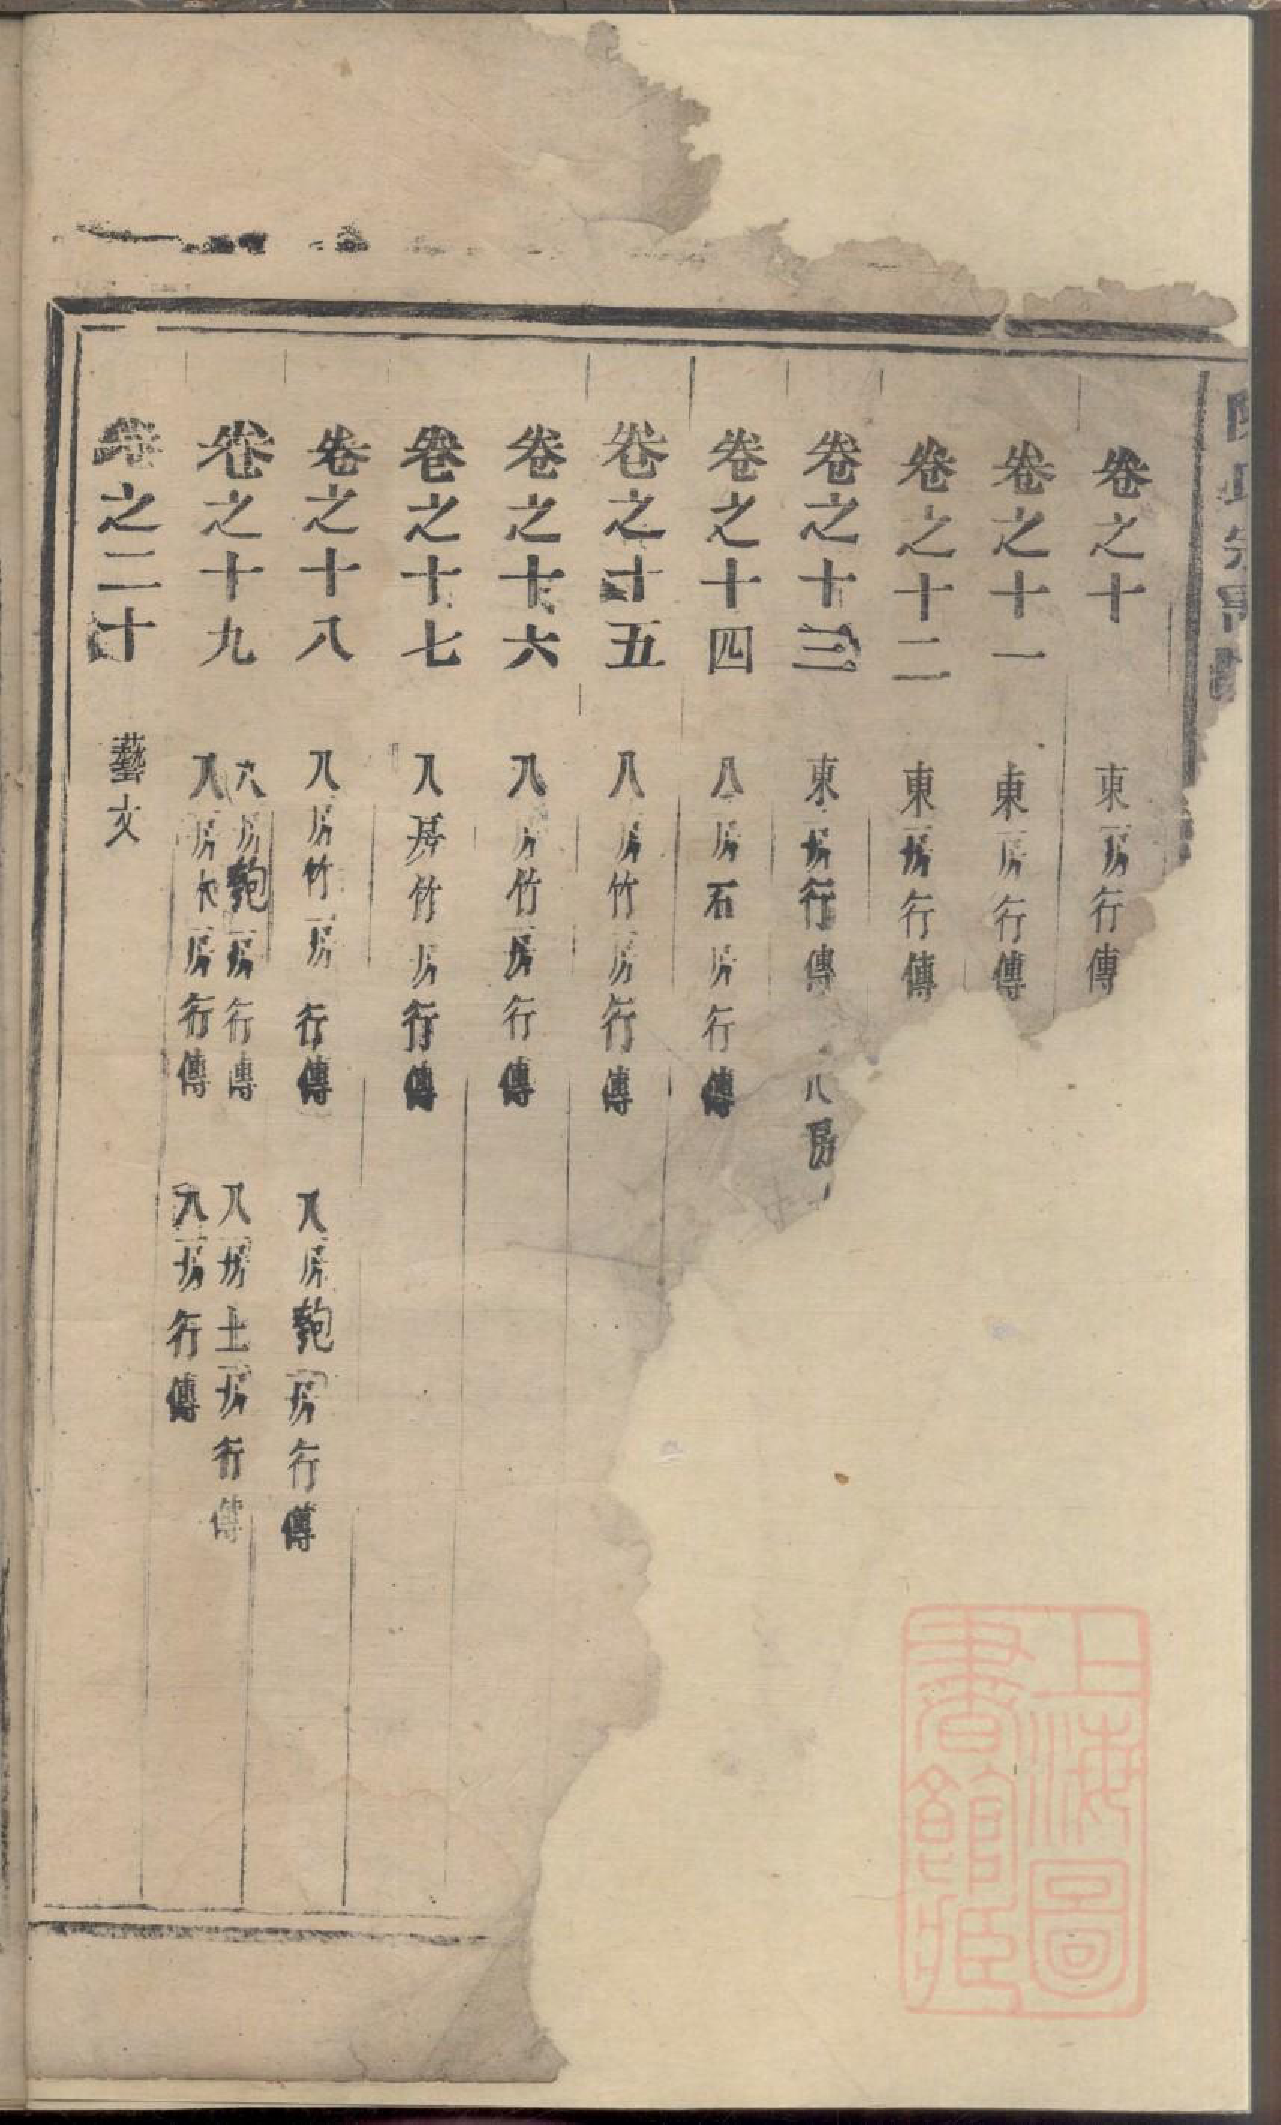 陳氏宗
卷之十 東房行傳
卷之十一 東房行傳
卷之十二 東房行傳
卷之十三 東房行傳 八房
卷之十四 八房石房行傳
卷之十五 八房竹房行傳
卷之十六 八房竹房行傳
卷之十七 八房竹房行傳
卷之十八 八房竹房行傳 八房匏房行傳
卷之十九 六房匏房行傳 八房土房行傳
八房木房行傳 八房行傳
卷之二十 藝文
上海圖
書館藏